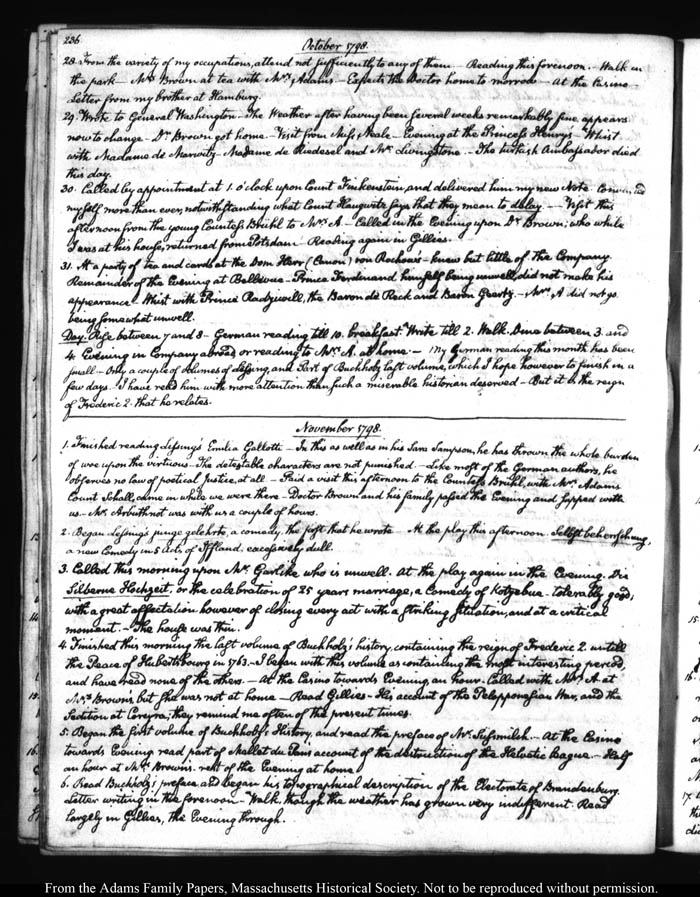 236
October 1798.
28. From the variety of my occupations, attend not sufficiently to any of them — Reading this forenoon. Walk in
the park — Mrs. Brown at tea with Mrs. Adams — Expects the Doctor home to morrow — At the Casino
Letter from my brother at Hamburg.
29. Wrote to General Washington — The Weather after having been several weeks remarkably fine appears
now to change — Dr. Brown got home — Visit from Miss Neale — Evening at the Princess Henry's — Whist
with Madame de Marwitz Madame de Riedesel and Mr. Livingstone — The turkish Ambassador died
this day.
30. Called by appointment at 1. o'clock upon Count Finkenstein, and delivered him my new Note. Convinced
myself more than ever, notwithstanding what Count Haugwitz says that they mean to delay — Visit this
afternoon from the young Countess Brühl to Mrs. A — Called in the Evening upon Dr. Brown, who while
I was at his house, returned from Potsdam. Reading again in Gillies.
31. At a party of tea and cards at the Dom Herr (Canon) von Rochows — knew but little of the Company
Remainder of the Evening at Bellevue — Prince Ferdinand himself being unwell, did not make his
appearance — Whist with Prince Radziwill, the Baron de Reck and Baron Geertz — Mrs. A did not go
being somewhat unwell.
Day. Rise between 7 and 8 — German reading till 10. breakfast. Write till 2. Walk. Dine between 3. and
4. Evening in Company abroad, or reading to Mrs. A. at home — My German reading this month has been
small — Only a couple of volumes of Lessing, and Part of Buchholz last volume, which I hope however to finish in a
few days. I have read him with more attention than such a miserable historian deserved — But it is the reign
of Frederic 2. that he relates.
November 1798.
1. Finished reading Lessing's Emilia Gallotti — In this as well as in his Sara Sampson, he has thrown the whole burden
of woe upon the virtuous — The detestable characters are not punished — Like most of the German authors, he
observes no law of poetical Justice, at all — Paid a visit this afternoon to the Countess Brühl, with Mrs. Adams
Count Schall, came in while we were there — Doctor Brown and his family passed the Evening and supped with
us — Mr. Arbuthnot was with us a couple of hours.
2. Began Lessing's junge gelehrte, a comedy, the first that he wrote — At the play this afternoon. Selbst beherschung,
a new Comedy in 5 Acts of Iffland. excessively dull.
3. Called this morning upon Mr. Garlike who is unwell. At the play again in the Evening. Die
Silberne Hochzeit, or the celebration of 25 years marriage, a Comedy of Kotzebue. tolerably good,
with a great affectation however of closing every act with a striking situation, and at a critical
moment — The house was thin.
4. Finished this morning the last volume of Buchholz's history, containing the reign of Frederic 2. untill
the Peace of Hubertsbourg in 1763 — I began with this volume as containing the most interesting period,
and have read none of the others — At the Casino towards Evening, an hour. Called with Mrs. A at
Mrs. Brown's, but she was not at home — Read Gillies — His account of the Peloponnesian War, and the
Sedition at Corcyra; they remind me often of the present times.
5. Began the first volume of Buchholz's History, and read the preface of Mr. Susmilch — At the Casino
towards Evening read part of Mallet du Pan's account of the destruction of the Helvetic league — Half
an hour at Mrs. Browns. rest of the Evening at home
6. Read Buchholz's preface, and began his topographical description of the Electorate of Brandenburg.
Letter writing in the forenoon — Walk, though the weather has grown very indifferent. Read
largely in Gillies, the Evening through.
From the Adams Family Papers, Massachusetts Historical Society. Not to be reproduced without permission.